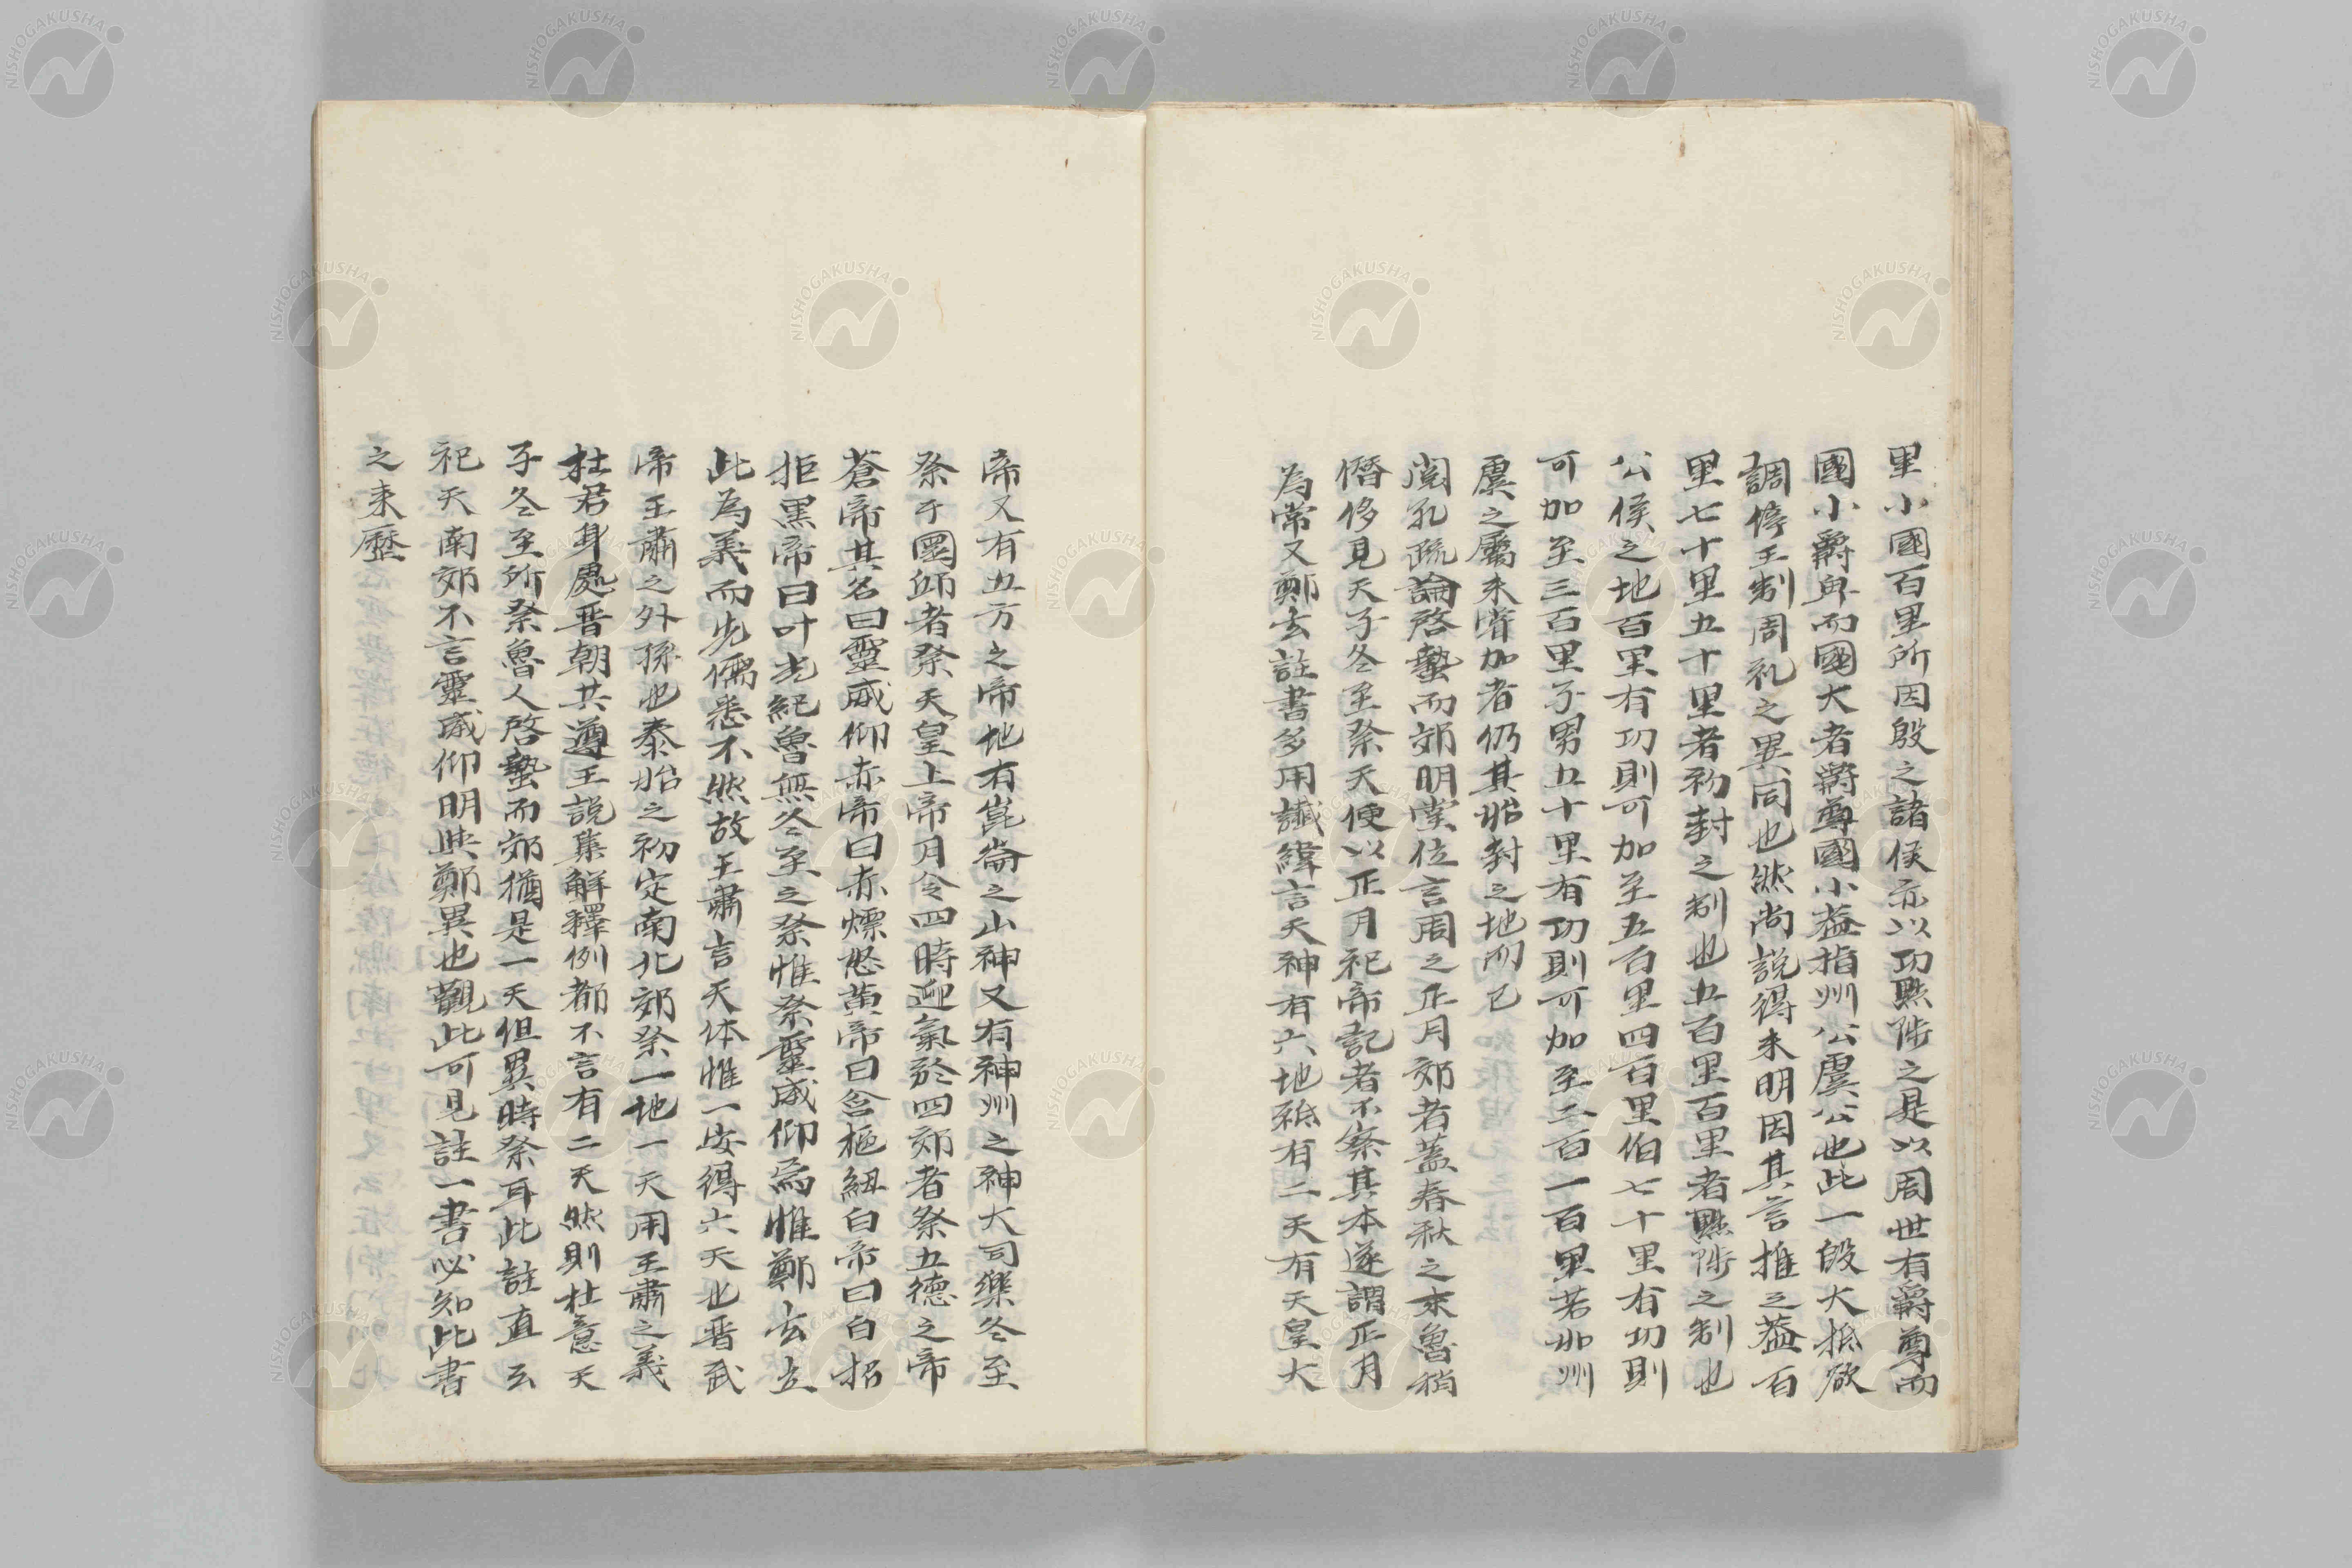 里小國百里所因殷之諸侯亦以功黜陟之是以周世有爵尊而
國小爵卑而國大者爵尊國小蓋指州公虞公也此一段大抵欲
調停王制周礼之異同也然尚說得未明因其言推之蓋百
里七十里五十里者初封之制也五百里百里者黜陟之制也
公侯之地百里有功則可加至五百里四百里伯七十里有功則
可加至三百里子男五十里有功則可加至二百一百里若如州
虞之屬未嘗加者仍其始封之地而已
閲孔疏論啓蟄而郊明堂位言周之正月郊者蓋春秋之末魯稍
僭侈見天子冬至祭天便以正月祀帝記者不察其本遂謂正月
為常又鄭玄註書多用讖緯言天神有六地祗有二天有天皇大
帝又有五方之帝地有崑崙之山神又有神州之神大司樂冬至
祭于圜丘者祭天皇上帝月令四時迎氣於四郊者祭五德之帝
蒼帝其名曰靈威仰赤帝曰赤熛怒黄帝曰含樞紐白帝曰白招
拒黒帝曰叶光紀魯無冬至之祭惟祭靈威仰焉惟鄭玄立
此為義而先儒悉不然故王肅言天体惟一安得六天也晋武
帝王肅之外孫也泰始之初定南北郊祭一地一天用王肅之義
杜君身處晋朝共遵王說集解釋例都不言有二天然則杜意天
子冬至所祭魯人啓蟄而郊猶是一天但異時祭耳此註直云
祀天南郊不言靈威仰明與鄭異也觀此可見註一書必知此書
之来歷
NISHOGAKUSHA